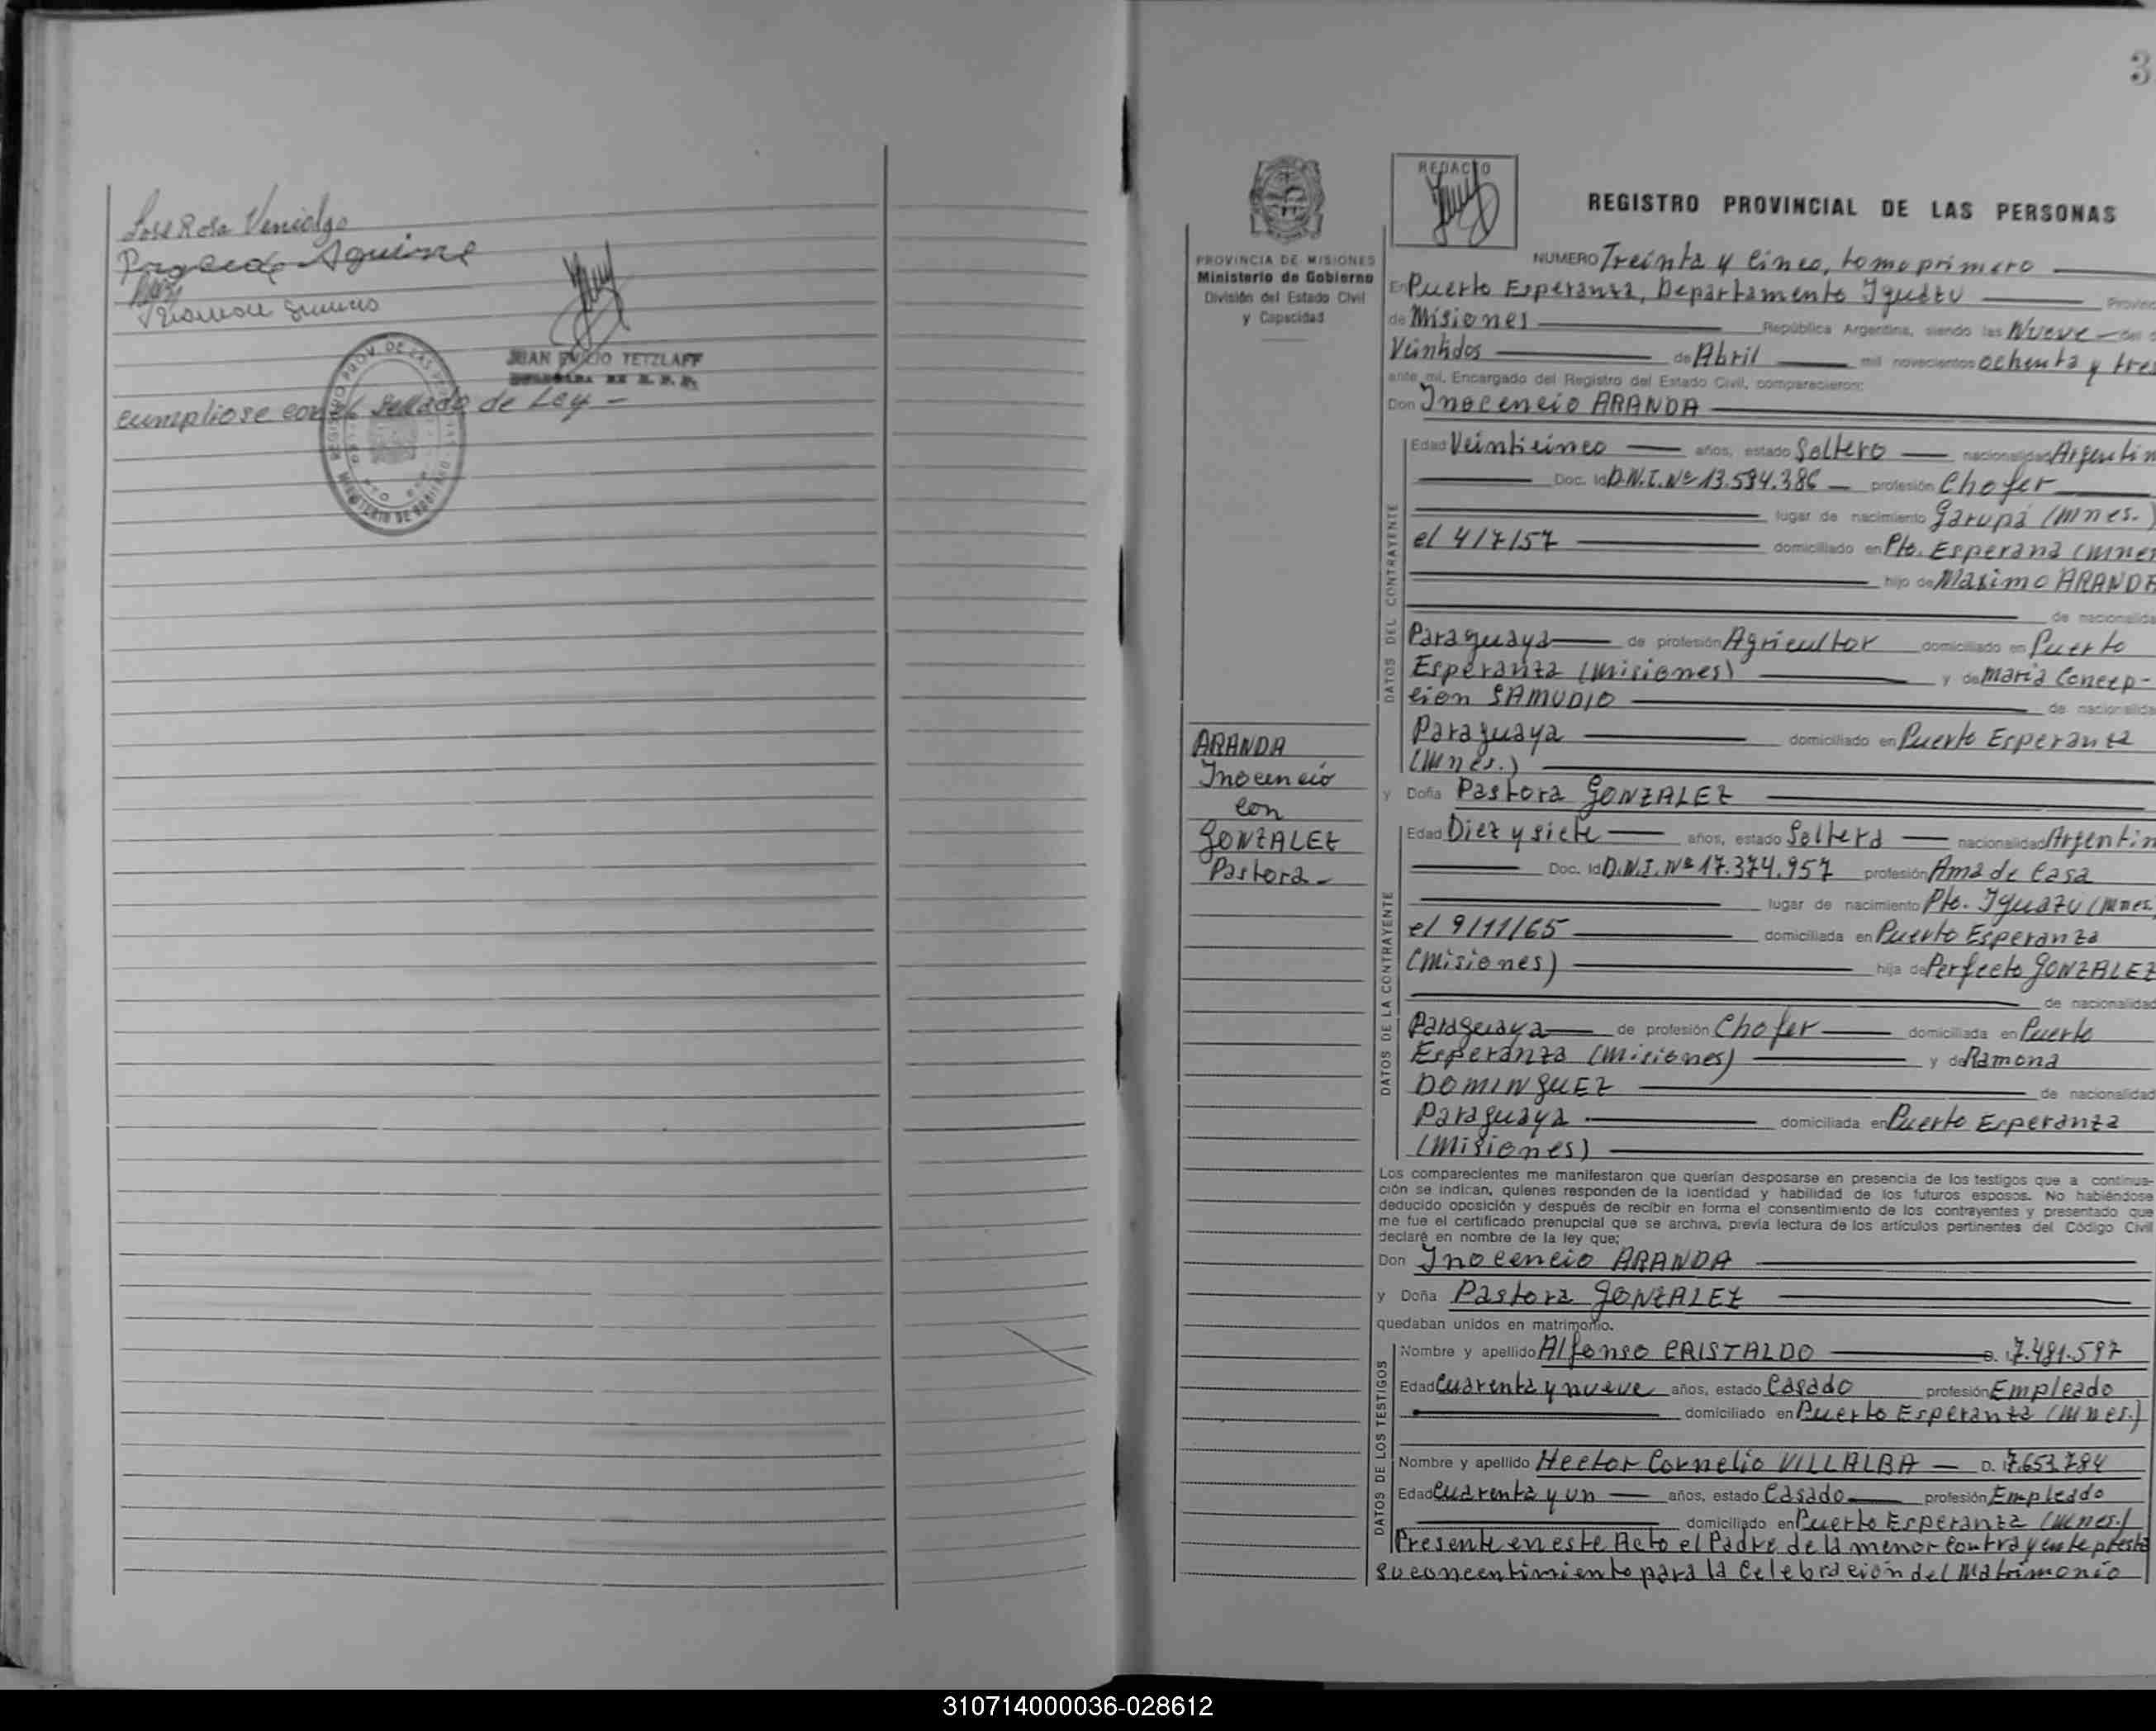 José Rosa Veniolgo
Aguirre
JUAN EMILIO TETZLAFF
cumpliose con el Sellado de Ley -
3
PROVINCIA DE MISIONES
Ministerio de Gobierno
División del Estado Civil
y Capacidad
REDACTO
REGISTRO PROVINCIAL DE LAS PERSONAS
NUMERO Treinta y Cinco, tomo primero
En Puerto Esperanza, Departamento Iguazu Provinc
de Misiones República Argentina, siendo las Nueve del
Veintidos de Abril mil novecientos ochenta y tres
ante mí, Encargado del Registro del Estado Civil, comparecieron:
Don Inocencio ARANDA
DATOS DEL CONTRAYENTE
Edad Veinticinco años, estado Soltero nacionalidad Argentin
Doc. Id D.N.I. Nº 13.594.386 profesión Chofer
lugar de nacimiento Garupá (Mnes.)
el 4/7/57 domiciliado en Pto. Esperana (Mnes
hijo de Maximo ARANDA
de nacionalida
Paraguaya de profesión Agricultor domiciliado en Puerto
Esperanza (Misiones) y de Maria Concep-
cion SAMUDIO de nacionalida
Paraguaya domiciliado en Puerto Esperanza
(Mnes.)
ARANDA
Inocencio
con
GONZALEZ
Pastora-
y Doña Pastora GONZALEZ
DATOS DE LA CONTRAYENTE
Edad Diez y siete años, estado Soltera nacionalidad Argentin
Doc. Id D.N.I. Nº 17.374.957 profesión Ama de Casa
lugar de nacimiento Pto. Iguazu (Mnes.
el 9/11/65 domiciliada en Puerto Esperanza
(Misiones) hija de Perfecto GONZALEZ
de nacionalidad
Paraguaya de profesión Chofer domiciliada en Puerto
Esperanza (Misiones) y de Ramona
DOMINGUEZ de nacionalidad
Paraguaya domiciliada en Puerto Esperanza
(Misiones)
Los comparecientes me manifestaron que querían desposarse en presencia de los testigos que a continua-
ción se indican, quienes responden de la identidad y habilidad de los futuros esposos. No habiéndose
deducido oposición y después de recibir en forma el consentimiento de los contrayentes y presentado que
me fue el certificado prenupcial que se archiva, previa lectura de los artículos pertinentes del Código Civil
declaré en nombre de la ley que;
Don Inocencio ARANDA
y Doña Pastora GONZALEZ
quedaban unidos en matrimonio.
DATOS DE LOS TESTIGOS
Nombre y apellido Alfonso CRISTALDO D. I. 7.481.597
Edad Cuarenta y nueve años, estado Casado profesión Empleado
domiciliado en Puerto Esperanza (Mnes.)
Nombre y apellido Hector Cornelio VILLALBA D. I. 7.653.784
Edad Cuarenta y un años, estado Casado profesión Empleado
domiciliado en Puerto Esperanza (Mnes.)
Presente en este Acto el Padre de la menor Contrayente presta
su concentimiento para la Celebracion del Matrimonio
310714000036-028612